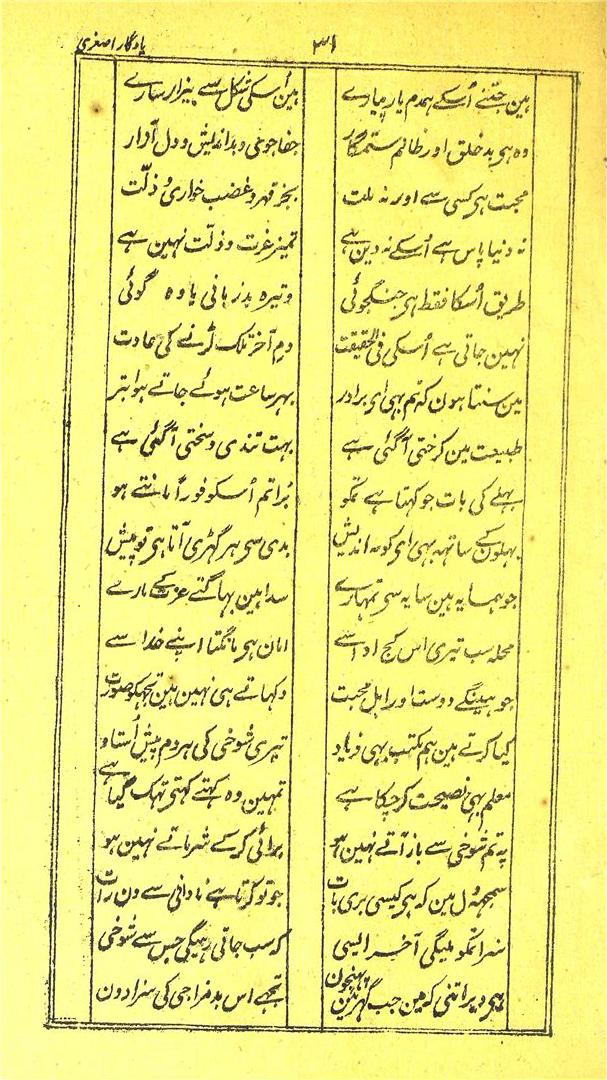 یادگار اصغری
۳۱
ہین جتنے اُسکے ہمدم یار پیارے ہین اُسکی شکل سے بیزار سارے
وہ ہی بدخلق اور ظالم ستمگار جفاجوئی و بداندیش و دل آزار
محبت ہی کسی سے اور نہ ملت بجز قہر و غضب خواری و ذلّت
نہ دنیا پاس ہے اُسکے نہ دین ہے تمیز عزت و ذلت نہین ہے
طریق اُسکا فقط ہی جنگجوئی وتیرہ بدزبانی یاوہ گوئی
نہین جاتی ہے اُسکی فی الحقیقت دم آخر تلک لڑنے کی عادت
مین سنتا ہون کہ تم بھی ای برادر بہر ساعت ہوئے جاتے ہو ابتر
طبیعت مین کرختی آگئی ہے بہت تندی و سختی آگئی ہے
بہلے کی بات جو کہتا ہے تمکو بُرا تم اُسکو فوراً مانتے ہو
بہلون کے ساتہہ بہی ای کوتہ اندیش بدی سی ہر گہڑی آتا ہی تو پیش
جو ہمسایہ ہین سایہ سی تمہارے سدا ہین بہاگتے عزت کے مارے
محلہ سب تیری اس کج ادا سے امان ہی مانگتا اپنے خدا سے
جو ہینگے دوست اور اہل محبت دکہاتے ہی نہین ہین تجہکو صورت
کیا کرتے ہین ہم مکتب بہی فریاد تیری شوخی کی ہر دم پیش اُستاد
معلم بہی نصیحت کر چکا ہے تمہین وہ کہتے کہتی تہک گیا ہے
پہ تم شوخی سے باز آتے نہین ہو برائی کرکے شرماتے نہین ہو
سمجہہ دل مین کہ ہی کیسی بری بات جو تو کرتا ہے نادانی سے دن رات
سزا تمکو ملیگی آخر ایسی کہ سب جاتی رہیگی جس سے شوخی
یہی دیر اتنی کہ مین جب گہر مین پہنچون تجہے اس بدمزاجی کی سزا دون